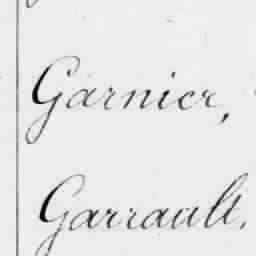 Garnier,
Garrault,